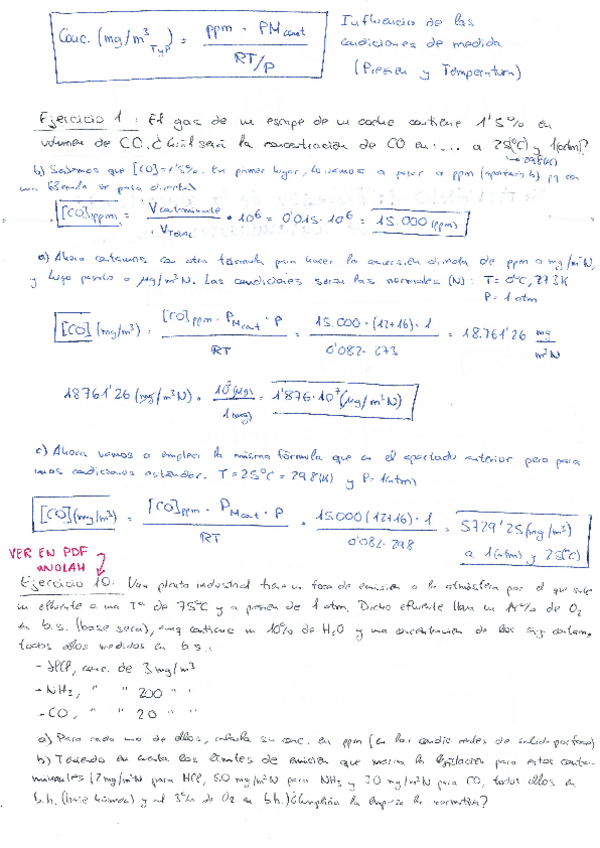 Conc. (mg/m³ TyP) = ppm · PMcont / RT/P
Influencia de las
condiciones de medida
(Presión y Temperatura)
Ejercicio 1: El gas de un escape de un coche contiene 1'5% en
volumen de CO. ¿Cuál será la concentración de CO en: ... a 25(ºC) y 1(atm)?
298(K)
b) Sabemos que [CO]=1'5%. En primer lugar, lo vamos a pasar a ppm (apartado b) pq con
una fórmula se pasa directa
[CO]ppm = Vcontaminante / VTotal · 10⁶ = 0'015 · 10⁶ = 15.000 (ppm)
a) Ahora contamos con otra fórmula para hacer la conversión directa de ppm a mg/m³N,
y luego pasarlo a µg/m³N. Las condiciones serán las normales (N): T= 0ºC, 273K
P= 1 atm
[CO] (mg/m³) = [CO]ppm · PMcont · P / RT = 15.000 · (12+16) · 1 / 0'082 · 273 = 18.761'26 mg/m³N
18761'26 (mg/m³N) · 10³(µg) / 1(mg) = 1'876·10⁷(µg/m³N)
c) Ahora vamos a emplear la misma fórmula que en el apartado anterior pero para
unas condiciones estándar. T=25ºC = 298(K) y P=1(atm)
[CO](mg/m³) = [CO]ppm · PMcont · P / RT = 15.000(12+16) · 1 / 0'082 · 298 = 5729'25(mg/m³)
a 1(atm) y 25(ºC)
VER EN PDF
WUOLAH
Ejercicio 10: Una planta industrial tiene un foco de emisión a la atmósfera por el que sale
un efluente a una Tª de 75ºC y a presión de 1 atm. Dicho efluente lleva un % de O₂
en b.s. (base seca), contiene un 10% de H₂O y una concentración de los sig. contam,
todos ellos medidos en b.s.:
- HCl, conc. de 3 mg/m³
- NH₃, " " 200 " "
- CO, " " 20 " "
a) Para cada uno de ellos, calcula su conc. en ppm (en las condic reales de salida por foco)
b) Teniendo en cuenta los límites de emisión que marca la legislación para estos conta-
minantes (7 mg/m³N para HCl, 50 mg/m³N para NH₃ y 30 mg/m³N para CO, todos ellos en
b.h. (base húmeda) y al 3% de O₂ en b.h.) ¿Cumpliría la empresa la normativa?